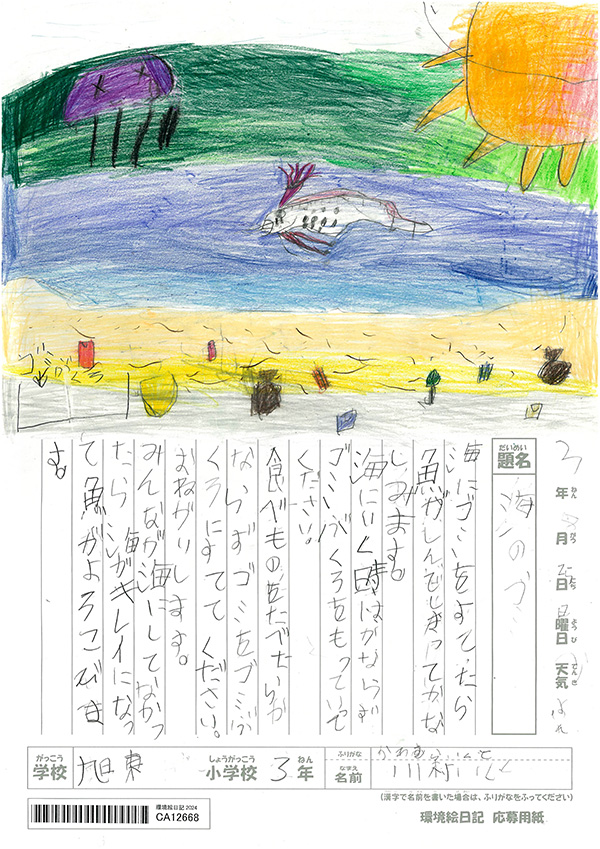 ゴミぶくろ
年 月 日 曜日 天気
ねん がつ にち ようび てんき
だいめい
題名
海のゴミ
海にゴミをすてたら
魚がしんでしまってかな
しみます。
海にいく時はかならず
ゴミぶくろをもっていって
ください。
食べものをたべたらか
ならずゴミをゴミぶ
くろにすててください。
おねがいします。
みんなが海にしてなかっ
たら海がキレイになっ
て魚がよろこびま
す。
がっこう
学校
旭東
しょうがっこう
小学校
3
ねん
年
ふりがな
なまえ
名前
(漢字で名前を書いた場合は、ふりがなをふってください)
環境絵日記 2024
CA12668
環境絵日記 応募用紙